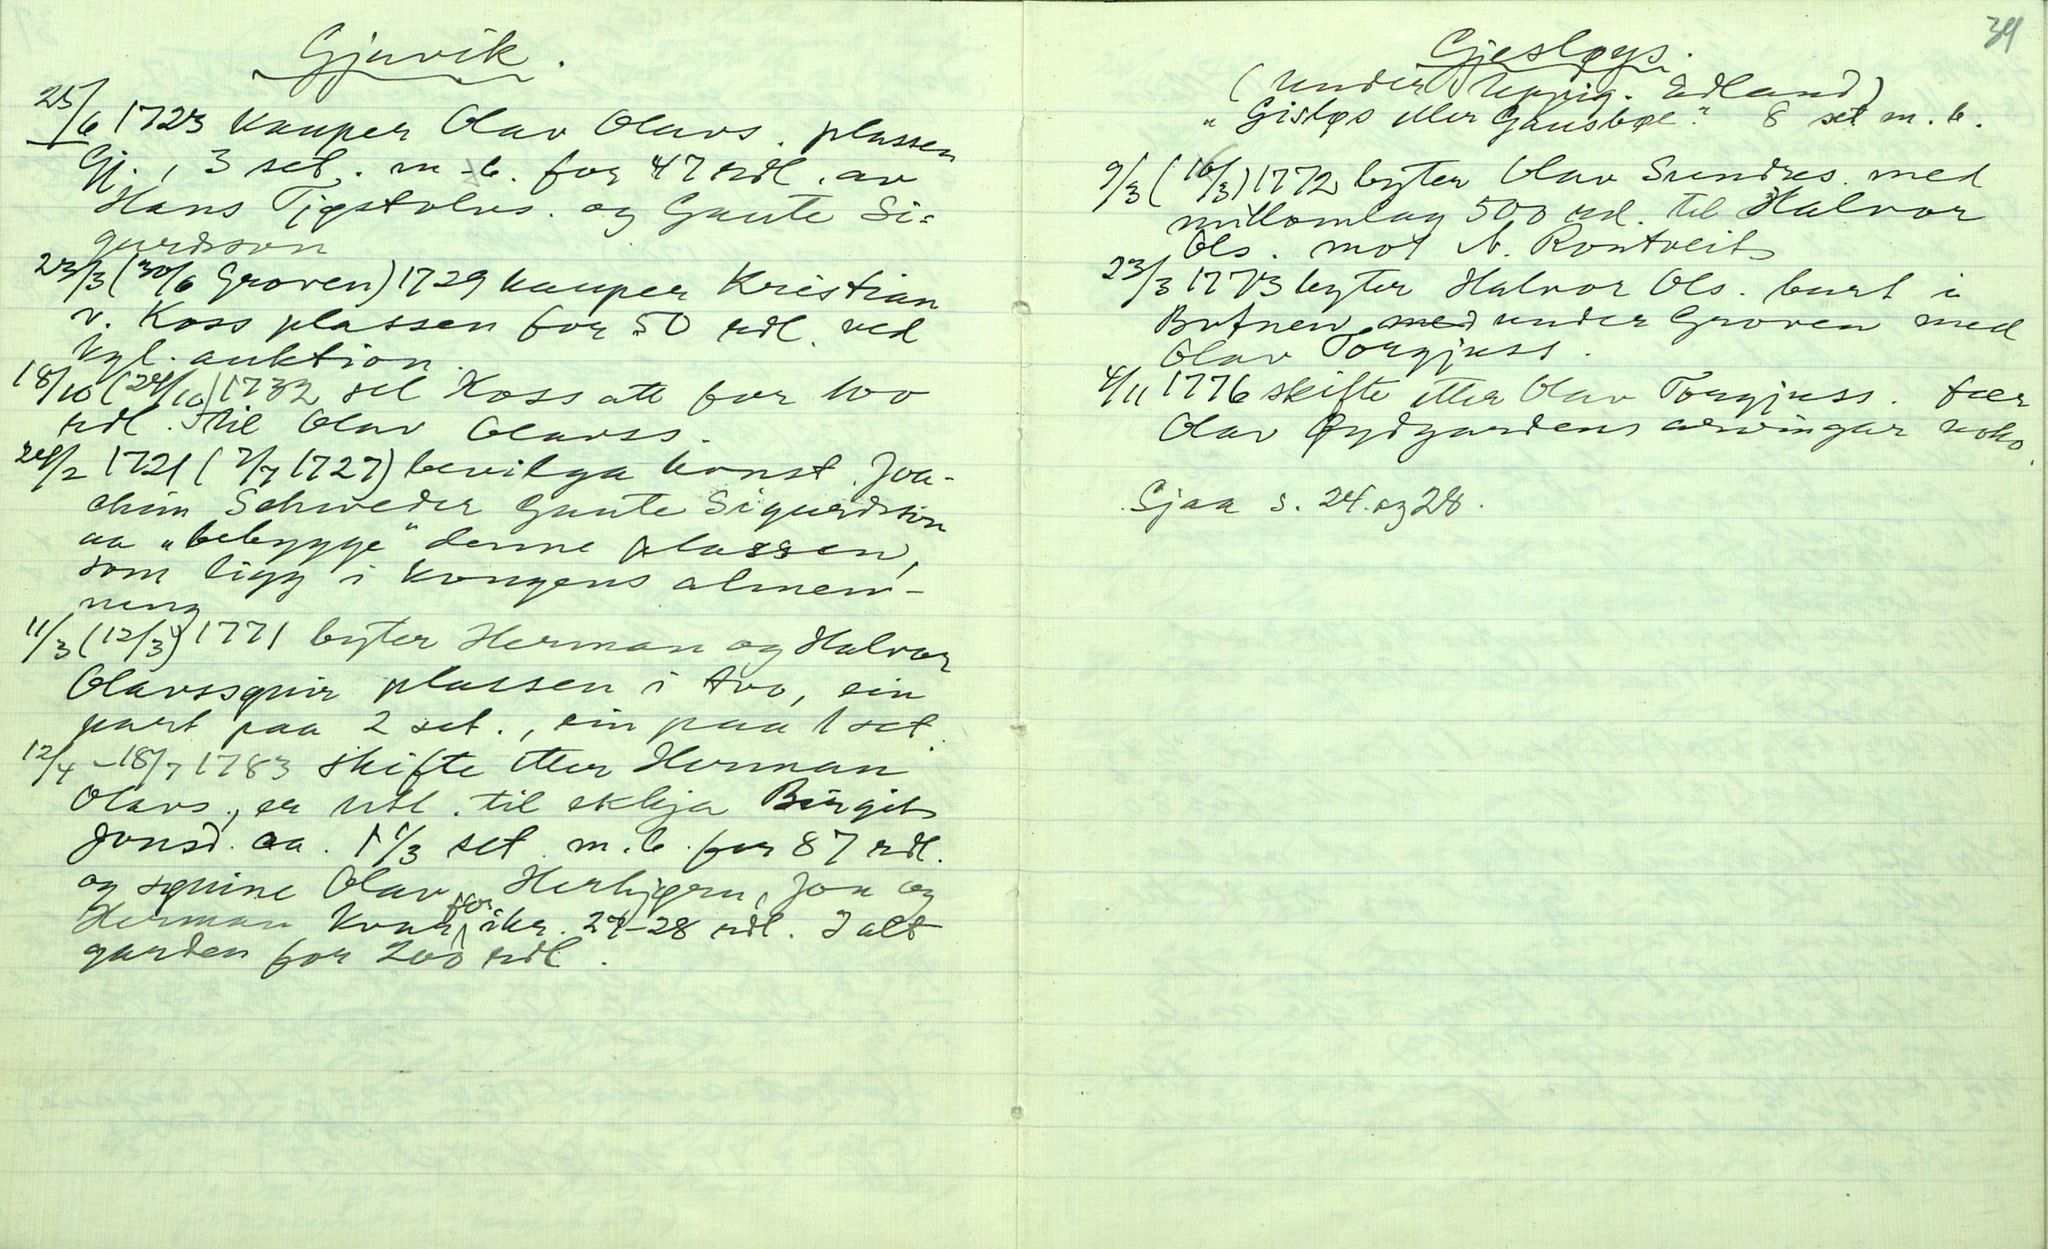 Gjuvik.
25/6 1723 kauper Olav Olavs. plassen
Gj., 3 set. m. b. for 47 rdl. av
Hans Tjøstolvs. og Gaute Si=
gurdsson
23/3 (30/6 Groven) 1729 kauper Kristian
v. Koss plassen for 50 rdl. ved
kgl. auktion.
18/10 (24/10) 1732 sel Koss att for 100
rdl. til Olav Olavss.
24/2 1721 (7/7 1727) bevilga konst. Joa-
chim Schweder Gaute Sigurdsson
aa „bebygge" denne plassen,
som ligg i kongens almen-
ning
11/3 (12/3) 1771 byter Herman og Halvor
Olavssønir plassen i tvo, ein
part paa 2 set., ein paa 1 set.
12/4 - 18/7 1783 skifte etter Herman
Olavs., er utl. til ekkja Birgit
Jonsd. aa. 1 1/3 set. m. b. for 87 rdl.
og sønine Olav, Herbjørn, Jon og
Herman kvar for ikr. 27-28 rdl. I alt
garden for 200 rdl.
34
Gjesløys.
(under Uppig. Edland)
„Gisløs eller Gausbøl" 8 set m. b.
9/3 (16/3) 1772 byter Olav Sundres. med
millomlag 500 rdl. til Halvor
Ols. mot N. Rontveit
23/3 1773 byter Halvor Ols. burt i
Botnen med under Groven med
Olav Torgjuss.
4/11 1776 skifte etter Olav Torgjuss. fær
Olav Øydgardens arvingar noko.
Sjaa s. 24. og 28.